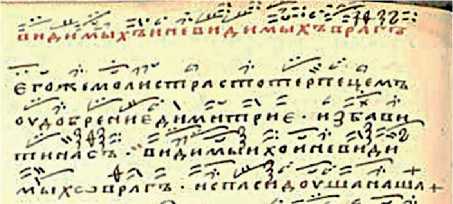 видимыхъиневидимыхъврагъ
єгожемолистрастотерпецемъ
оудобрениедимитриє · избави
тинасъ · видимыихоиневиди
мыхѡврагъ · испасидоушанаша+